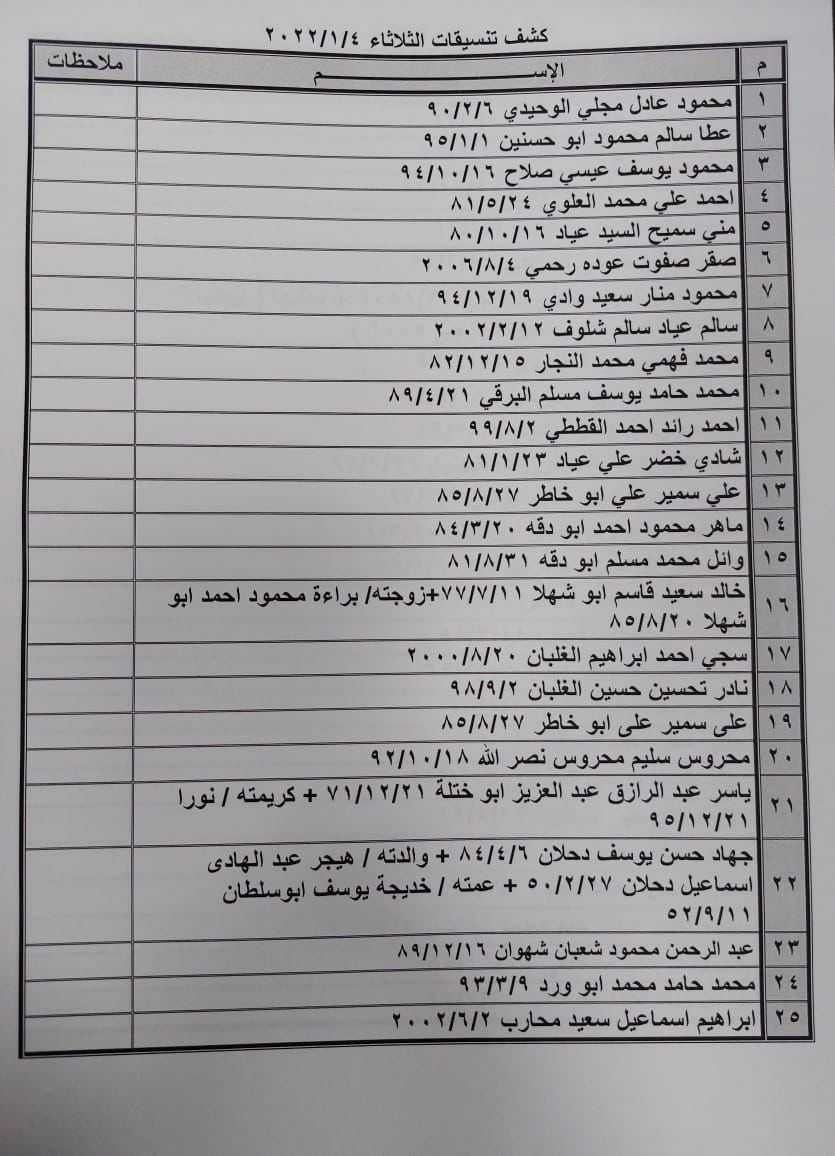 كشف تنسيقات الثلاثاء ٢٠٢٢/١/٤
م الإســــــــــــم ملاحظات
١ محمود عادل مجلي الوحيدي ٩٠/٢/٦
٢ عطا سالم محمود ابو حسنين ٩٥/١/١
٣ محمود يوسف عيسي صلاح ٩٤/١٠/١٦
٤ احمد علي محمد العلوي ٨١/٥/٢٤
٥ مني سميح السيد عياد ٨٠/١٠/١٦
٦ صقر صفوت عوده رحمي ٢٠٠٦/٨/٤
٧ محمود منار سعيد وادي ٩٤/١٢/١٩
٨ سالم عياد سالم شلوف ٢٠٠٢/٢/١٢
٩ محمد فهمي محمد النجار ٨٢/١٢/١٥
١٠ محمد حامد يوسف مسلم البرقي ٨٩/٤/٢١
١١ احمد رائد احمد القططي ٩٩/٨/٢
١٢ شادي خضر علي عياد ٨١/١/٢٣
١٣ علي سمير علي ابو خاطر ٨٥/٨/٢٧
١٤ ماهر محمود احمد ابو دقه ٨٤/٣/٢٠
١٥ وائل محمد مسلم ابو دقه ٨١/٨/٣١
١٦ خالد سعيد قاسم ابو شهلا ٧٧/٧/١١+زوجته/ براءة محمود احمد ابو
شهلا ٨٥/٨/٢٠
١٧ سجي احمد ابراهيم الغلبان ٢٠٠٠/٨/٢٠
١٨ نادر تحسين حسين الغلبان ٩٨/٩/٢
١٩ على سمير على ابو خاطر ٨٥/٨/٢٧
٢٠ محروس سليم محروس نصر الله ٩٢/١٠/١٨
٢١ ياسر عبد الرازق عبد العزيز ابو ختلة ٧١/١٢/٢١ + كريمته / نورا
٩٥/١٢/٢١
٢٢ جهاد حسن يوسف دحلان ٨٤/٤/٦ + والدته / هيجر عبد الهادى
اسماعيل دحلان ٥٠/٢/٢٧ + عمته / خديجة يوسف ابوسلطان
٥٢/٩/١١
٢٣ عبد الرحمن محمود شعبان شهوان ٨٩/١٢/١٦
٢٤ محمد حامد محمد ابو ورد ٩٣/٣/٩
٢٥ ابراهيم اسماعيل سعيد محارب ٢٠٠٢/٦/٢